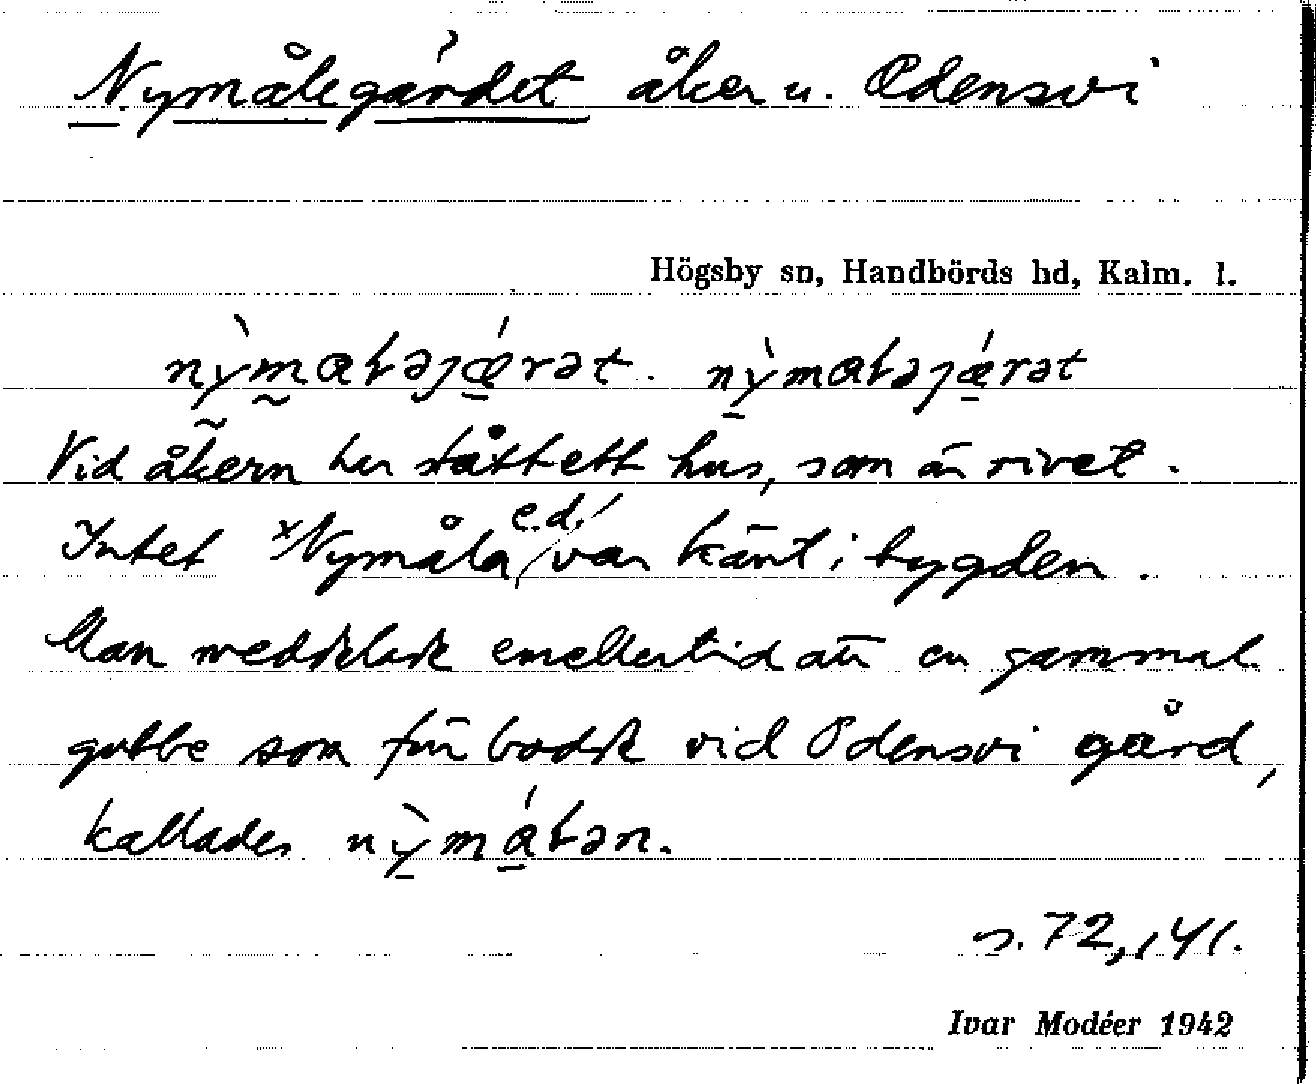 Nymålegärdet åker u. Odensvi
Högsby sn, Handbörds hd, Kalm. l.
nỳmaɫəjǽrət. nỳmaɫəjǽrət
Vid åkern har stått ett hus, som är rivet.
Intet ˣNymåla e.d. var känt i bygden.
Man meddelade emellertid att en gammal
gubbe som förr bodde vid Odensvi gård,
kallades nỳmáɫən.
s. 72, 141.
Ivar Modéer 1942